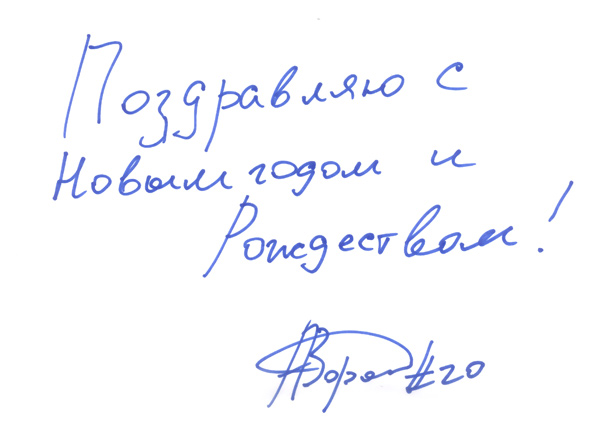 Поздравляю с
Новым годом и
Рождеством!
#20